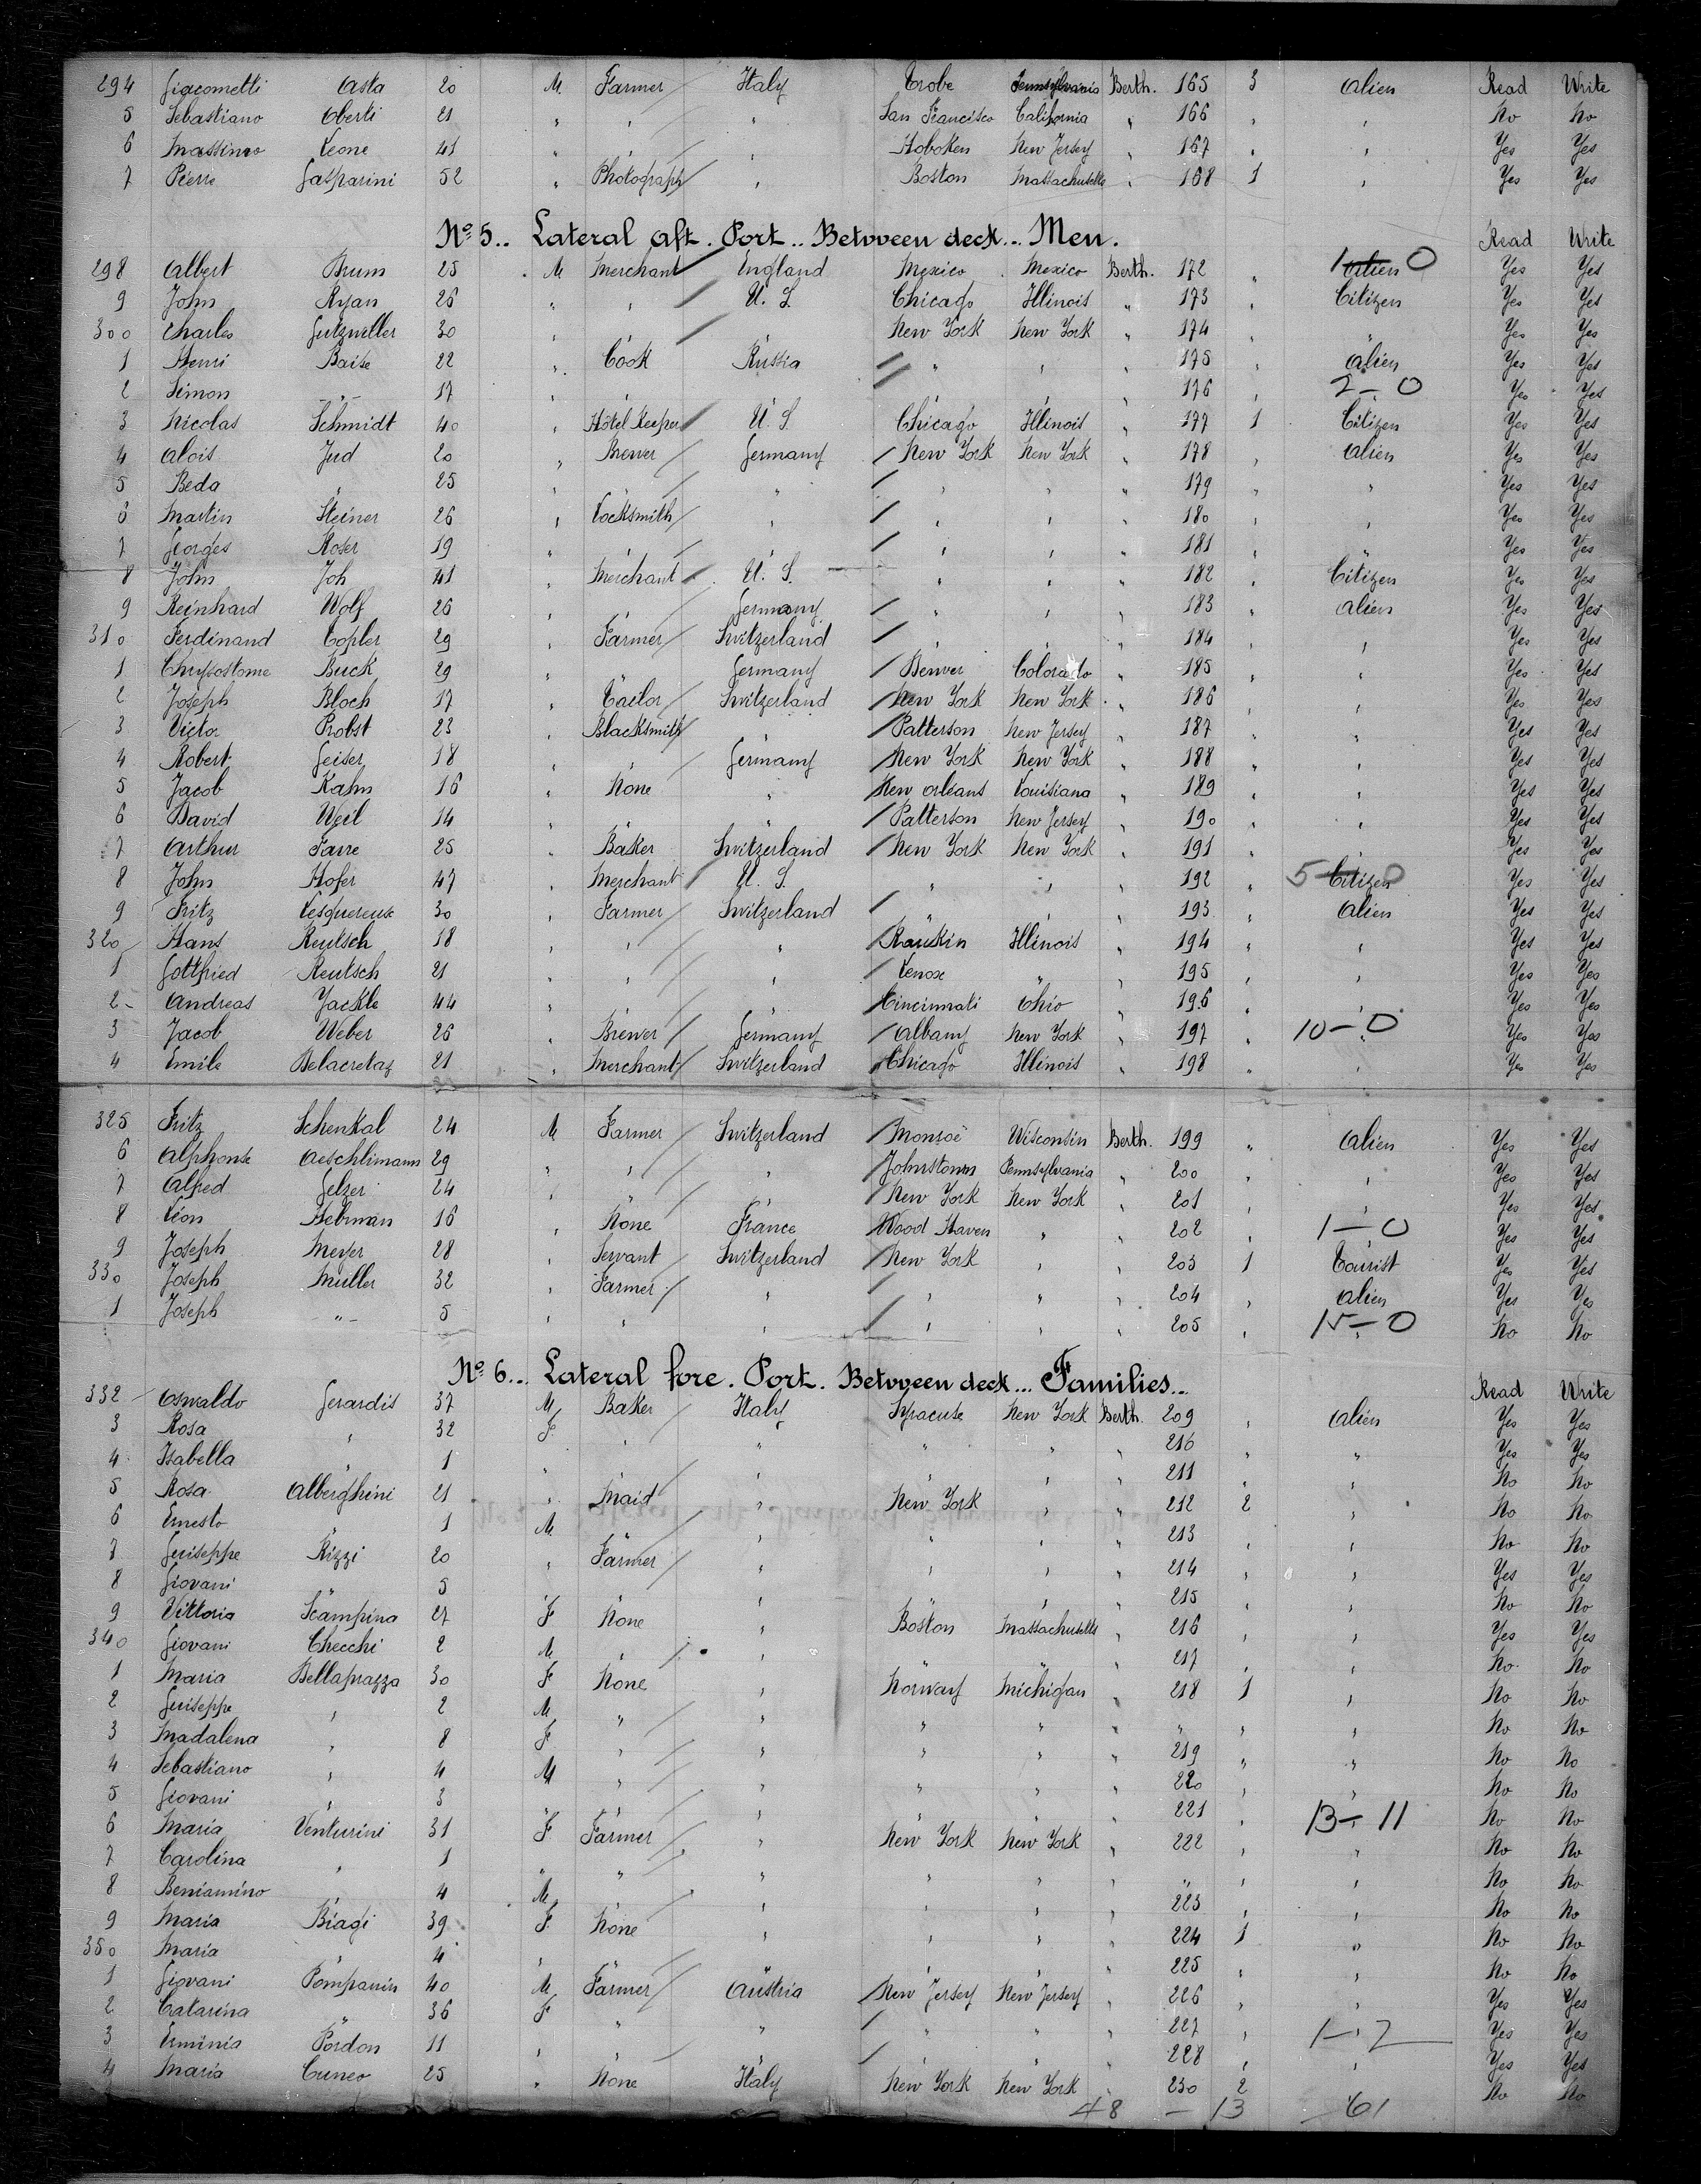 294 Giacometti Asta 20 M. Farmer Italy Trobe Pennsylvania Berth. 165 3 Alien Read Write
5 Sebastiano Oberti 21 " " " San Francisco California " 166 " " No No
6 Massimo Leone 41 " " " Hoboken New Jersey " 167 " " Yes Yes
7 Pierre Gasparini 52 " Photograph " Boston Massachusetts " 168 1 " Yes Yes
No 5.. Lateral aft. Port.. Between deck... Men. Read Write
298 Albert Brum 25 M Merchant England Mexico Mexico Berth. 172 " Alien 1 0 Yes Yes
9 John Ryan 26 " " U. S. Chicago Illinois " 173 " Citizen Yes Yes
300 Charles Gutzwiller 30 " " " New York New York " 174 " " Yes Yes
1 Henri Baise 22 " Cook Russia " " " 175 " Alien Yes Yes
2 Simon " 17 " " " " " " 176 " 2-0 Yes Yes
3 Nicolas Schmidt 40 " Hôtel Keeper U. S. Chicago Illinois " 177 1 Citizen Yes Yes
4 Alois Jud 20 " Brewer Germany New York New York " 178 " Alien Yes Yes
5 Beda " 25 " " " " " " 179 " " Yes Yes
6 Martin Steiner 26 " Locksmith " " " " 180 " " Yes Yes
7 Georges Roser 19 " " " " " " 181 " " Yes Yes
8 John Joh 41 " Merchant U. S. " " " 182 " Citizen Yes Yes
9 Reinhard Wolf 26 " " Germany " " " 183 " Alien Yes Yes
310 Ferdinand Copler 29 " Farmer Switzerland " " " 184 " " Yes Yes
1 Chrysostome Buck 29 " " Germany Denver Colorado " 185 " " Yes Yes
2 Joseph Bloch 17 " Tailor Switzerland New York New York " 186 " " Yes Yes
3 Victor Probst 23 " Blacksmith " Patterson New Jersey " 187 " " Yes Yes
4 Robert Geiser 18 " " Germany New York New York " 188 " " Yes Yes
5 Jacob Kahn 16 " None " New Orleans Louisiana " 189 " " Yes Yes
6 David Weil 14 " " " Patterson New Jersey " 190 " " Yes Yes
7 Arthur Favre 25 " Baker Switzerland New York New York " 191 " " Yes Yes
8 John Hofer 47 " Merchant U. S. " " " 192 " 5 Citizen 0 Yes Yes
9 Fritz Lesquereux 30 " Farmer Switzerland " " " 193 " Alien Yes Yes
320 Hans Reutsch 18 " " " Rankin Illinois " 194 " " Yes Yes
1 Gottfried Reutsch 21 " " " Lenox " " 195 " " Yes Yes
2 Andreas Jackle 44 " " " Cincinnati Ohio " 196 " " Yes Yes
3 Jacob Weber 26 " Brewer Germany Albany New York " 197 " 10-0 Yes Yes
4 Emile Delacretaz 21 " Merchant Switzerland Chicago Illinois " 198 " " Yes Yes
325 Fritz Schenkal 24 M Farmer Switzerland Monroe Wisconsin Berth. 199 " Alien Yes Yes
6 Alphonse Aeschlimann 29 " " " Johnstown Pennsylvania " 200 " " Yes Yes
7 Alfred Gelzer 24 " " " New York New York " 201 " " Yes Yes
8 Léon Hebman 16 " None France Wood Haven " " 202 " 1-0 Yes Yes
9 Joseph Meyer 28 " Servant Switzerland New York " " 203 1 Tourist Yes Yes
330 Joseph Muller 32 " Farmer " " " " 204 " Alien Yes Yes
1 Joseph " 5 " " " " " " 205 " 15-0 No No
No 6... Lateral fore. Port. Between deck... Families... Read Write
332 Oswaldo Gerardis 37 M Baker Italy Syracuse New York Berth. 209 " Alien Yes Yes
3 Rosa " 32 F. " " " " " 210 " Yes Yes
4 Isabella " 1 " " " " " " 211 " " No No
5 Rosa Alberghini 21 " Maid " New York " " 212 2 " No No
6 Ernesto " 1 M " " " " " 213 " " No No
7 Guiseppe Rizzi 20 " Farmer " " " " 214 " " Yes Yes
8 Giovani " 5 " " " " " 215 " " No No
9 Vittoria Scampina 27 F None " Boston Massachusetts " 216 " " Yes Yes
340 Giovani Checchi 2 M " " " " 217 " " No No
1 Maria Bellaprazza 30 F None " Norway Michigan " 218 1 " No No
2 Guiseppe " 2 M " " " " " " " " No No
3 Madalena " 8 F " " " " " 219 " " No No
4 Sebastiano " 4 M " " " " " 220 " " No No
5 Giovani " 3 " " " " " " 221 " 13-11 No No
6 Maria Venturini 31 F Farmer " New York New York " 222 " " No No
7 Carolina " 1 " " " " " " " " " No No
8 Beniamino " 4 M " " " " " 223 " " No No
9 Maria Biagi 39 F None " " " " 224 1 " No No
350 Maria " 4 " " " " " " 225 " " No No
1 Giovani Pompanin 40 M Farmer Austria New Jersey New Jersey " 226 " " Yes Yes
2 Catarina " 36 F " " " " " 227 " 1-2 Yes Yes
3 Erminia Pordon 11 " " " " " " 228 " " Yes Yes
4 Maria Cuneo 25 " None Italy New York New York " 230 2 No No
48 - 13 - 61